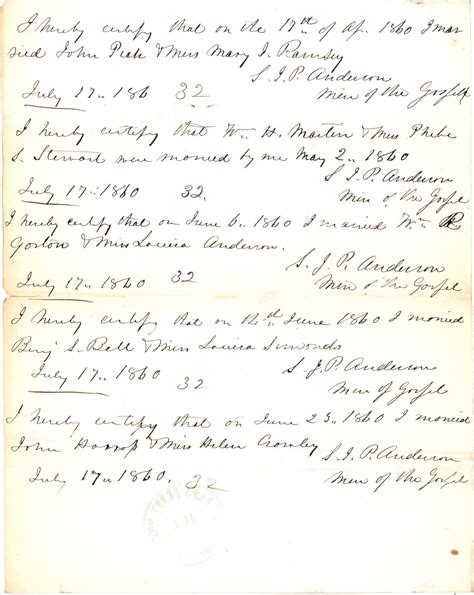 I hereby certify that on the 17th of Ap. 1860 I mar
ried John Peek & Miss Mary J. Ramsey
S. J. P. Anderson
July 17th 1860 32 Min of the Gospel
I hereby certify that Wm H. Martin & Miss Phebe
S. Stewart were married by me May 2. 1860
S J. P. Anderson
July 17. 1860 32. Min of the Gospel
I hereby certify that on June 6. 1860 I married Wm R
Gorton & Miss Louisa Anderson.
S. J. P. Anderson
July 17th 1860 32 Min of the Gospel
I hereby certify that on 12th June 1860 I married
Benj S. Bell & Miss Louisa Simonds
S. J. P. Anderson
July 17th 1860 32 Min of Gospel
I hereby certify that on June 23. 1860 I married
John & Miss Helen Crowley
S. J. P. Anderson
July 17th 1860. 32 Min of the Gospel